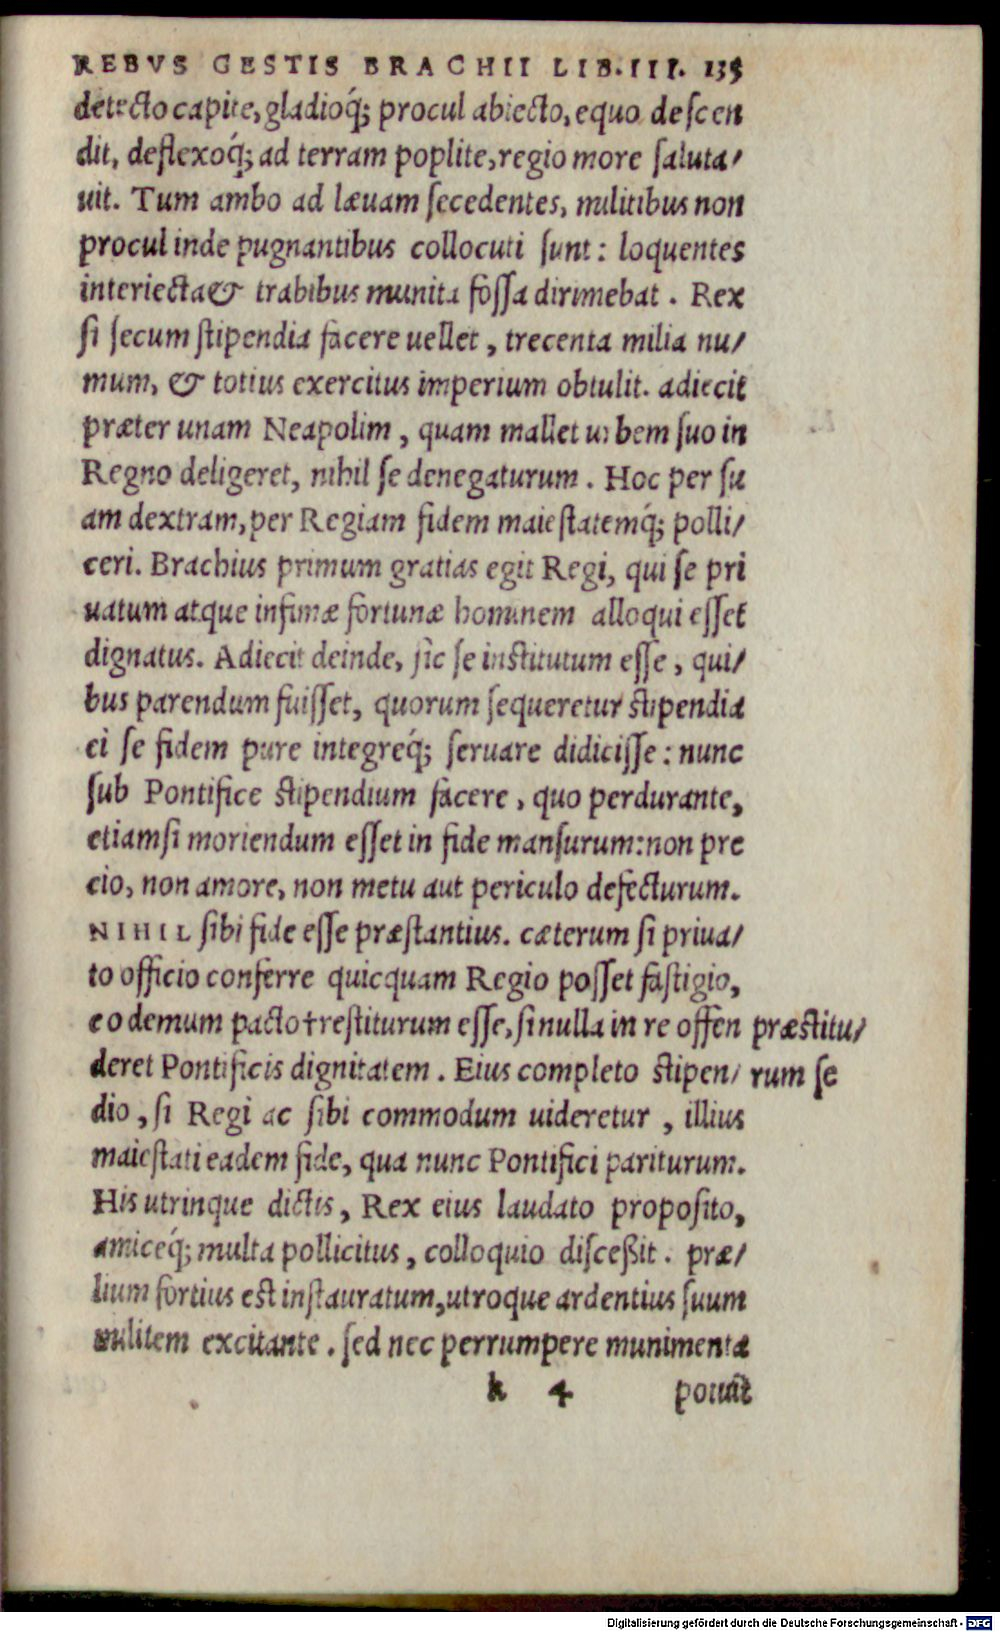 REBVS GESTIS BRACHII LIB.III. 135
detecto capite, gladioq́; procul abiecto, equo descen
dit, deflexoq́; ad terram poplite, regio more saluta/
uit. Tum ambo ad læuam secedentes, militibus non
procul inde pugnantibus collocuti sunt: loquentes
interiecta & trabibus munita fossa dirimebat. Rex
si secum stipendia facere uellet, trecenta milia nu/
mum, & totius exercitus imperium obtulit. adiecit
præter unam Neapolim, quam mallet urbem suo in
Regno deligeret, nihil se denegaturum. Hoc per su
am dextram, per Regiam fidem maiestatemq́; polli/
ceri. Brachius primum gratias egit Regi, qui se pri
uatum atque infimæ fortunæ hominem alloqui esset
dignatus. Adiecit deinde, sic se institutum esse, qui/
bus parendum fuisset, quorum sequeretur stipendia
ei se fidem pure integreq́; seruare didicisse: nunc
sub Pontifice stipendium facere, quo perdurante,
etiamsi moriendum esset in fide mansurum: non pre
cio, non amore, non metu aut periculo defecturum.
NIHIL sibi fide esse præstantius. cæterum si priua/
to officio conferre quicquam Regio posset fastigio,
eo demum pacto † restiturum esse, si nulla in re offen præstitu/
deret Pontificis dignitatem. Eius completo stipen/ rum se
dio, si Regi ac sibi commodum uideretur, illius
maiestati eadem fide, qua nunc Pontifici pariturum.
His utrinque dictis, Rex eius laudato proposito,
amiceq́; multa pollicitus, colloquio disceßit. præ/
lium fortius est instauratum, utroque ardentius suum
militem excitante. sed nec perrumpere munimenta
k 4 potuit
Digitalisierung gefördert durch die Deutsche Forschungsgemeinschaft - DFG